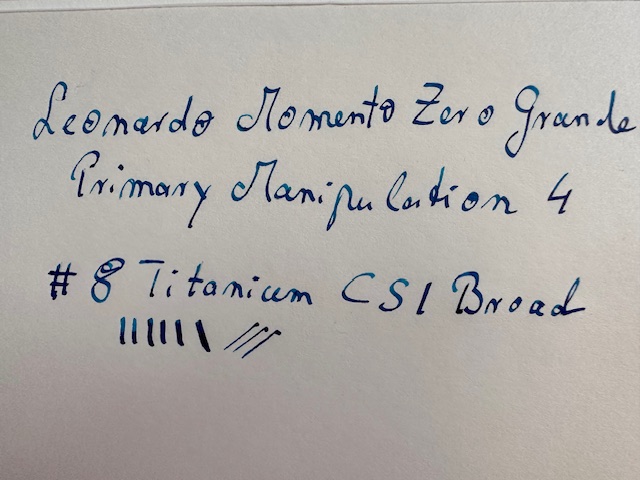 Leonardo Momento Zero Grande
Primary Manipulation 4
# 8 Titanium CSI Broad